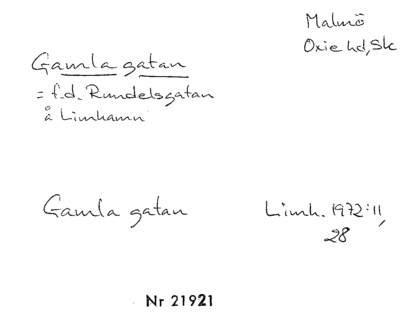 Malmö
Oxie hd, Sk
Gamla gatan
= f.d. Rundelsgatan
å Limhamn
Gamla gatan
Limh. 1972:11,
28
Nr 21921